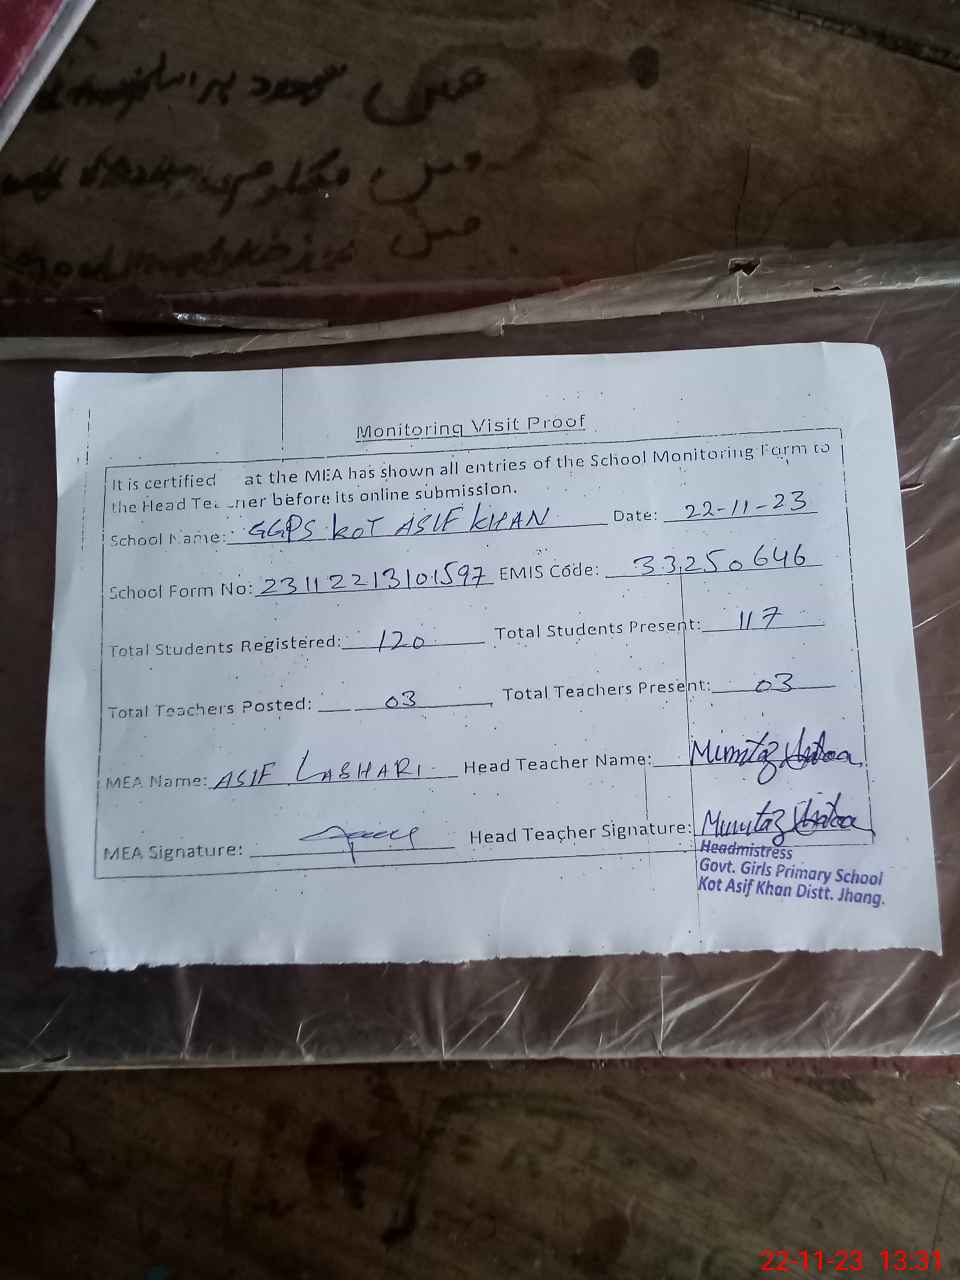 Monitoring Visit Proof
It is certified at the MEA has shown all entries of the School Monitoring Form to
the Head Teacher before its online submission.
School Name: GGPS KOT ASIF KHAN Date: 22-11-23
School Form No: 23112213101597 EMIS Code: 33250646
Total Students Registered: 120 Total Students Present: 117
Total Teachers Posted: 03 Total Teachers Present: 03
MEA Name: ASIF LASHARI Head Teacher Name: Mumtaz
MEA Signature: Head Teacher Signature: Mumtaz
Headmistress
Govt. Girls Primary School
Kot Asif Khan Distt. Jhang.
22-11-23 13:31